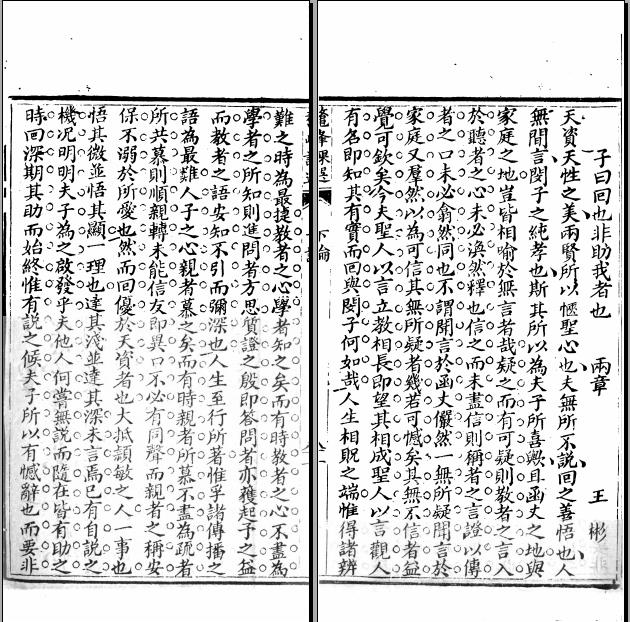 子曰回也非助我者也　兩章　王彬
天資天性之美兩賢所以愜聖心也夫無所不說回之善悟也人
無間言閔子之純孝也斯其所以為夫子所喜歟且函丈之地與
家庭之地豈皆相喻於無言者哉疑之而有可疑則教者之言入
於聽者之心未必渙然釋也信之而未盡信則稱者之言證以傳
者之口未必翕然同也不謂聞言於函丈儼然一無所疑聞言於
家庭又羣然以為可信其無所疑者幾若可憾矣其無不信者益
覺可欽矣今夫聖人以言立教相長即望其相成聖人以言觀人
有名即知其有實而回與閔子何如哉人生相眂之端惟得諸辨
鼇峰課選
下論
難之時為最捷教者之心學者知之矣而有時教者之心不盡為
學者之所知則進問者方思質證之殷即答問者亦獲起予之益
而教者之語安知不引而彌深也人生至行所著惟孚諸傳播之
語為最難人子之心親者慕之矣而有時親者所慕不盡為疏者
所共慕則順親轉未能信友即異口不必有同聲而親者之稱安
保不溺於所愛也然而回優於天資者也大抵穎敏之人一事也
悟其微並悟其顯一理也達其淺並達其深未言焉已有自說之
機况明明夫子為之啟發乎夫他人何嘗無說而隨在皆有助之
時回深期其助而始終惟有說之候夫子所以有憾辭也而要非